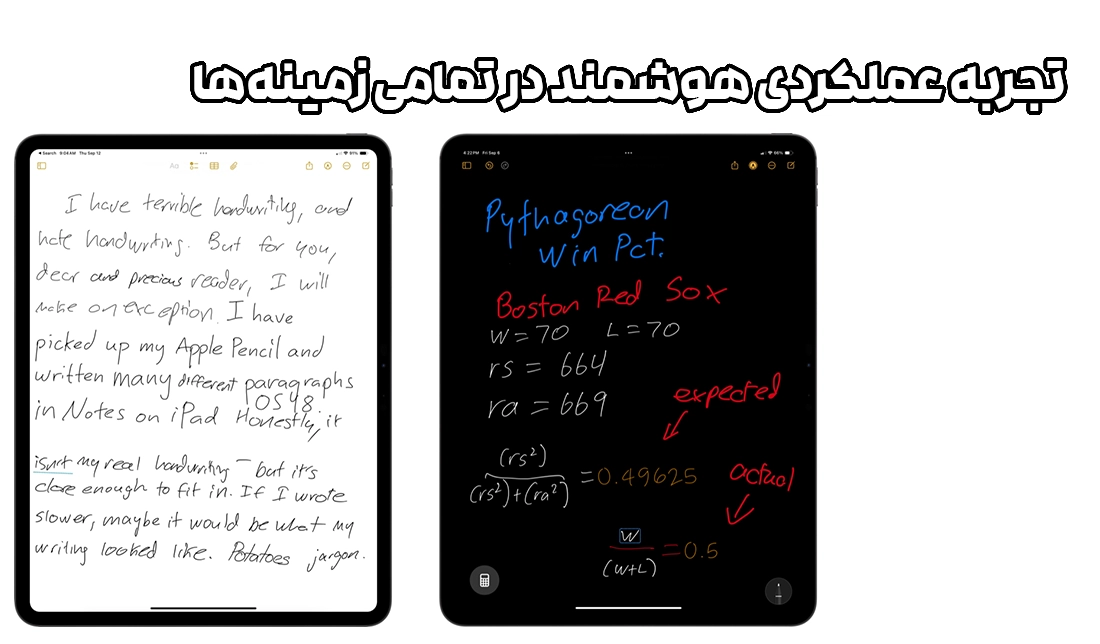 تجربه عملکردی هوشمند در تمامی زمینه‌ها
Search 9:04 AM Thu Sep 12
91%
Aa
I have terrible handwriting, and
hate handwriting. But for you,
dear and precious reader, I will
make an exception. I have
picked up my Apple Pencil and
written many different paragraphs
in Notes on iPad OS 18
Honestly, it
isn't my real handwriting – but it's
close enough to fit in. If I wrote
slower, maybe it would be what my
writing looked like. Potatoes jargon.
4:22 PM Fri Sep 6
66%
Pythagorean
Win Pct.
Boston Red Sox
W = 70 L = 70
rs = 664
ra = 669
expected
(rs²)
(rs²)+(ra²)
= 0.49625
actual
W
(W+L)
= 0.5